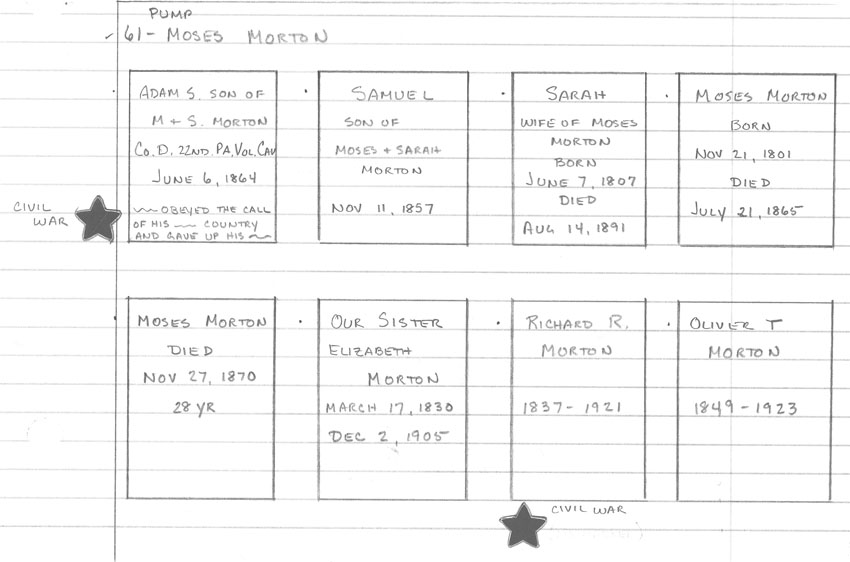 PUMP
✓ 61- MOSES MORTON
ADAM S. SON OF
M + S. MORTON
CO. D. 22ND. PA. VOL. CAV
JUNE 6, 1864
~~ OBEYED THE CALL
OF HIS ~~ COUNTRY
AND GAVE UP HIS ~~
CIVIL
WAR
SAMUEL
SON OF
MOSES + SARAH
MORTON
NOV 11, 1857
SARAH
WIFE OF MOSES
MORTON
BORN
JUNE 7, 1807
DIED
AUG 14, 1891
MOSES MORTON
BORN
NOV 21, 1801
DIED
JULY 21, 1865
MOSES MORTON
DIED
NOV 27, 1870
28 YR
OUR SISTER
ELIZABETH
MORTON
MARCH 17, 1830
DEC 2, 1905
RICHARD R.
MORTON
1837- 1921
CIVIL WAR
OLIVER T
MORTON
1849 - 1923